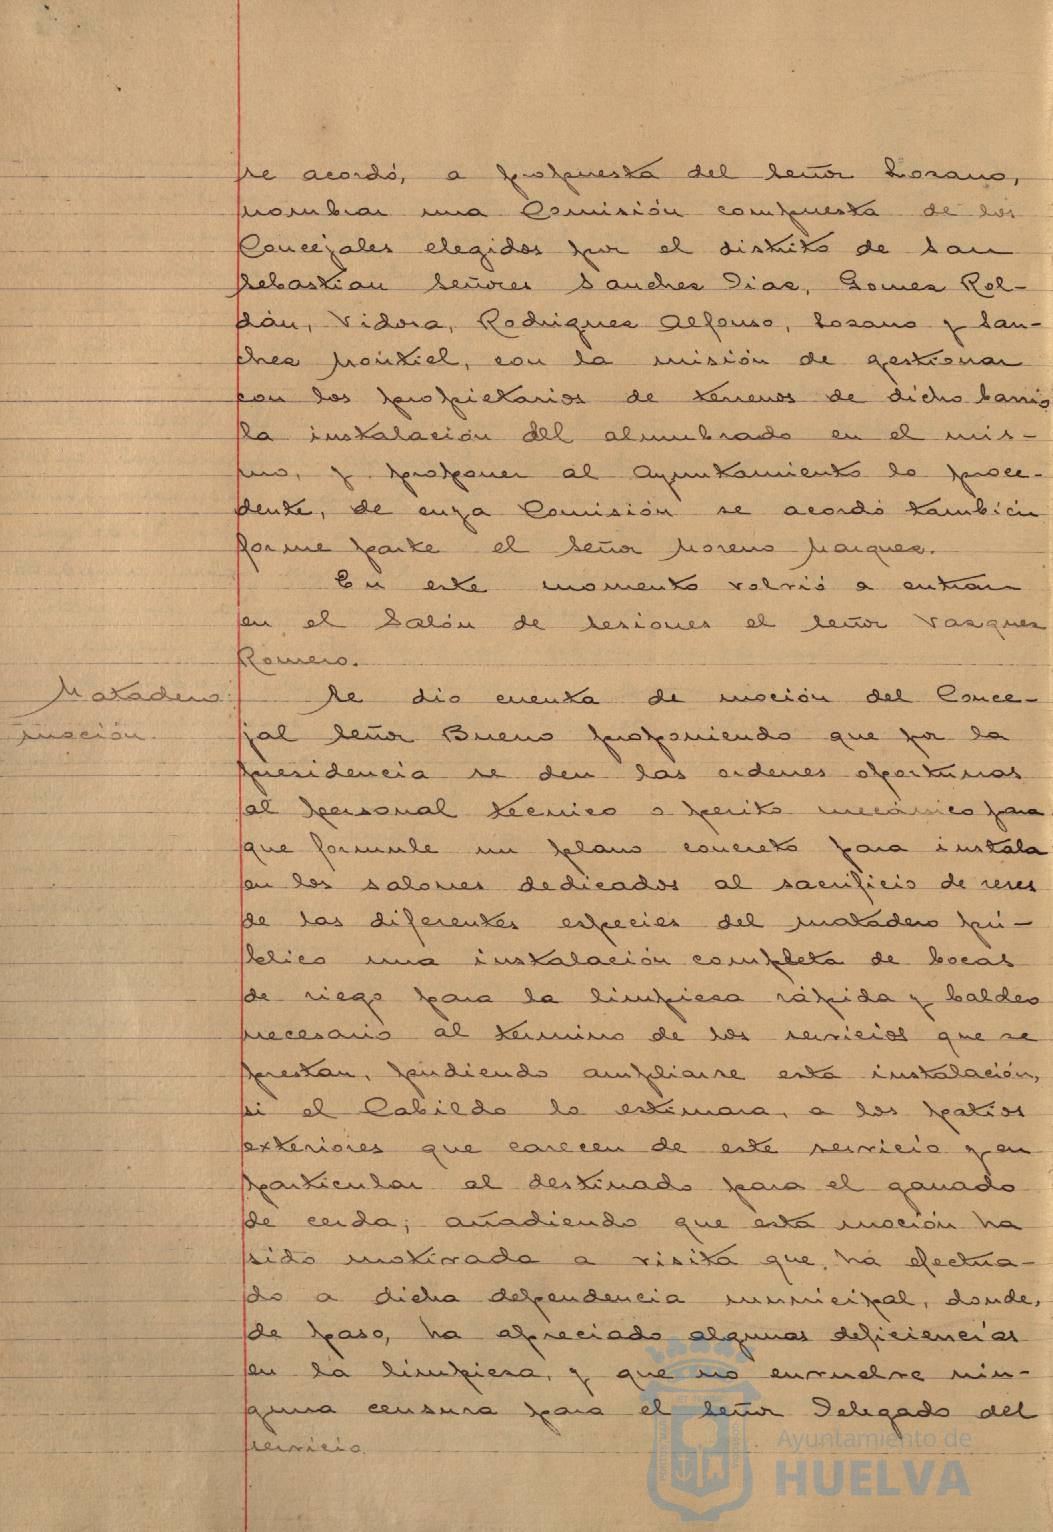 se acordó, a propuesta del Señor Lozano,
nombrar una Comisión compuesta de los
Concejales elegidos por el distrito de San
Sebastian Señores Sanchez Diaz, Gomez Rol-
dán, Vidosa, Rodriguez Alfonso, Lozano y San-
chez Montiel, con la misión de gestionar
con los propietarios de terrenos de dicho barrio
la instalación del alumbrado en el mis-
mo, y proponer al Ayuntamiento lo proce-
dente, de cuya Comisión se acordó también
forme parte el Señor Moreno Marquez.
En este momento volvió a entrar
en el Salón de Sesiones el Señor Vazquez
Romero.
Matadero:
moción.
Se dio cuenta de moción del Conce-
jal Señor Bueno proponiendo que por la
presidencia se den las ordenes oportunas
al personal tecnico o perito mecánico para
que formule un plano concreto para instala
en los salones dedicados al sacrificio de reses
de las diferentes especies del matadero pú-
blico una instalación completa de bocas
de riego para la limpieza rápida y baldeo
necesario al termino de los servicios que se
prestan, pudiendo ampliarse esta instalación,
si el Cabildo lo estimara, a los patios
exteriores que carecen de este servicio y en
particular al destinado para el ganado
de cerda; añadiendo que esta moción ha
sido motivada a visita que ha efectua-
do a dicha dependencia municipal, donde,
de paso, ha apreciado algunas deficiencias
en la limpieza, y que no envuelve nin-
guna censura para el Señor Delegado del
servicio.
Ayuntamiento de
HUELVA